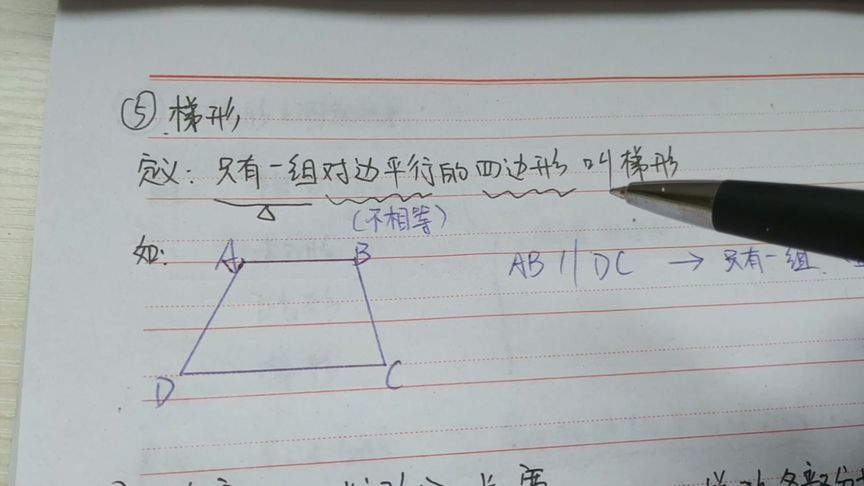 ⑤ 梯形
定义：只有一组对边平行的四边形叫梯形
（不相等）
如：
A B
AB // DC → 只有一组
D C